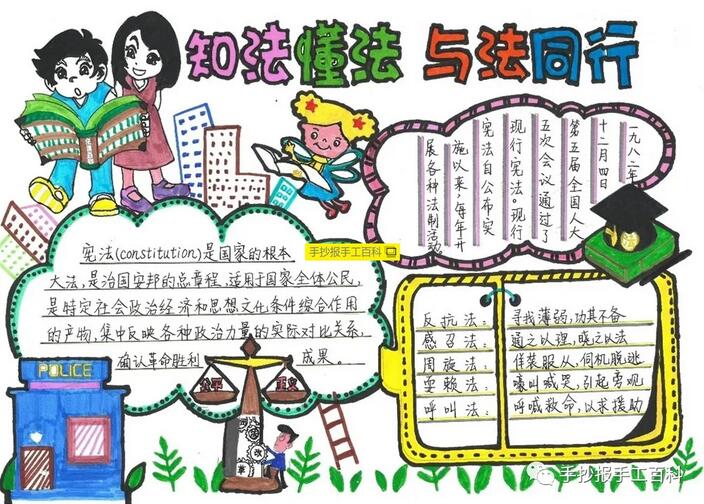 知法懂法 与法同行
一九八二年
十二月四日
第五届全国人大
五次会议通过了
现行宪法。现行
宪法自公布实
施以来,每年开
展各种法制活动
手抄报手工百科
宪法(constitution)是国家的根本
大法,是治国安邦的总章程,适用于国家全体公民,
是特定社会政治经济和思想文化条件综合作用
的产物,集中反映各种政治力量的实际对比关系,
确认革命胜利成果。
公平 正义
POLICE
反抗法:寻找薄弱,功其不备
感召法:通之以理,晓之以法
周旋法:佯装服从,伺机脱逃
耍赖法:嚎叫喊哭,引起旁观
呼叫法:呼喊救命,以求援助
手抄报手工百科